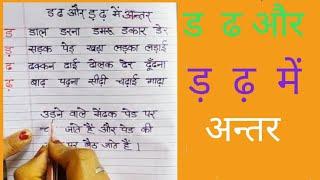 ड ढ और ड़ ढ़ में अन्तर
ड डाल डरना डमरू डकार डेर
ड़ सड़क पेड़ खड़ा लड़का लड़ाई
ढ ढक्कन ढाई ढोलक ढेर ढूँढना
ढ़ बाढ़ पढ़ना सीढ़ी चढ़ाई गाढ़ा
उड़ने वाले मेंढक पेड़ पर
जाते हैं और पेड़ की
पर बैठ जाते हैं।
ड ढ और
ड़ ढ़ में
अन्तर